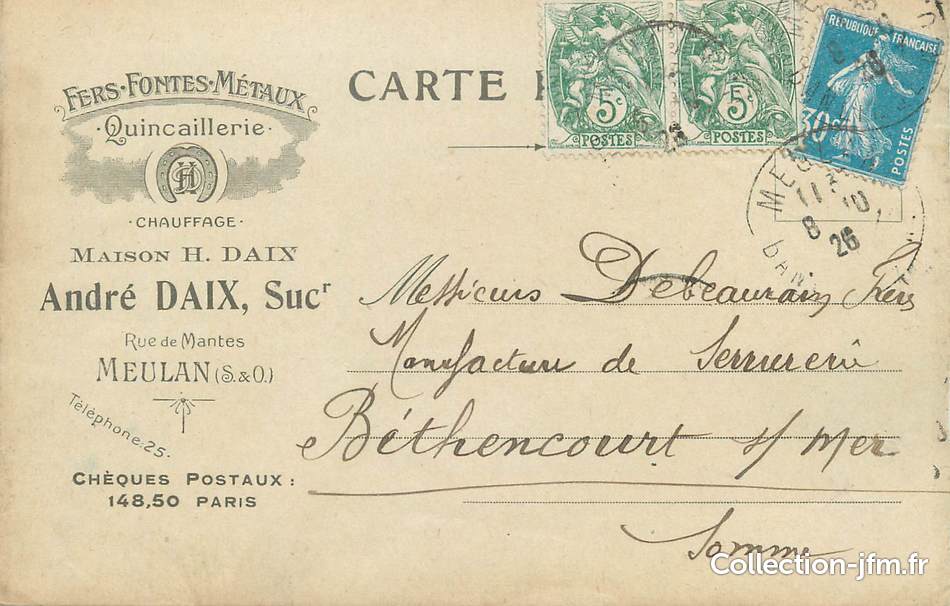 FERS·FONTES·MÉTAUX
·Quincaillerie·
HD
·CHAUFFAGE·
MAISON H. DAIX
André DAIX, Sucr
Rue de Mantes
MEULAN (S.&O.)
Téléphone: 25.
CHÈQUES POSTAUX :
148,50 PARIS
CARTE
5c
POSTES
5c
POSTES
RÉPUBLIQUE FRANÇAISE
30c
POSTES
8
26
Messieurs Debeaurain Frères
Manufacture de Serrurerie
Béthencourt s/ Mer
Somme
Collection-jfm.fr